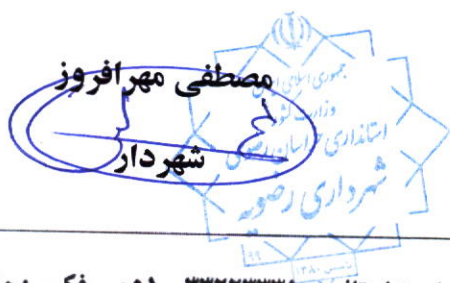 مصطفی مهرافروز
شهردار
جمهوری اسلامی ایران
وزارت کشور
استانداری خراسان رضوی
شهرداری رضویه
تاسیس ۱۳۸۰